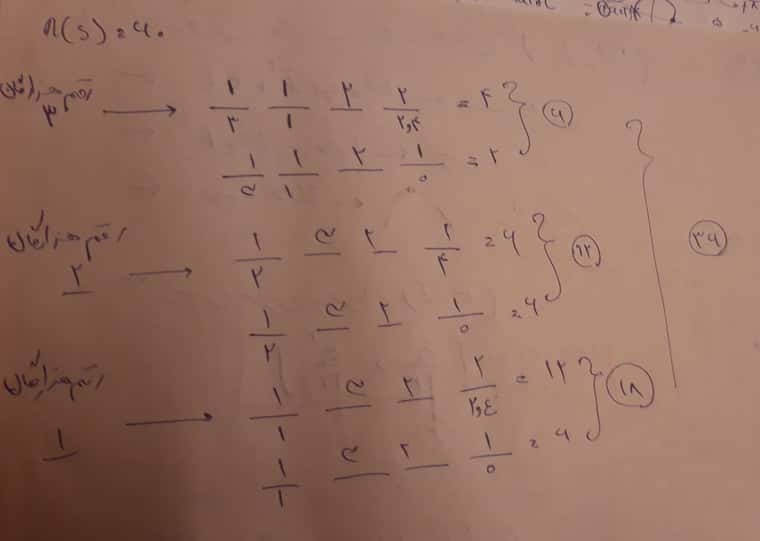 n(S) = ۶۰
رقم هزارگان
۳ → ۱/۳ ۱/۱ ۲ ۲/۲,۴ = ۴
۱/۳ ۱/۱ ۲ ۱/۰ = ۲
۶
رقم هزارگان
۲ → ۱/۲ ۳ ۲ ۱/۴ = ۶
۱/۲ ۳ ۲ ۱/۰ = ۶
۱۲
۳۶
رقم هزارگان
۱ → ۱/۱ ۳ ۲ ۲/۲,۴ = ۱۲
۱/۱ ۳ ۲ ۱/۰ = ۶
۱۸